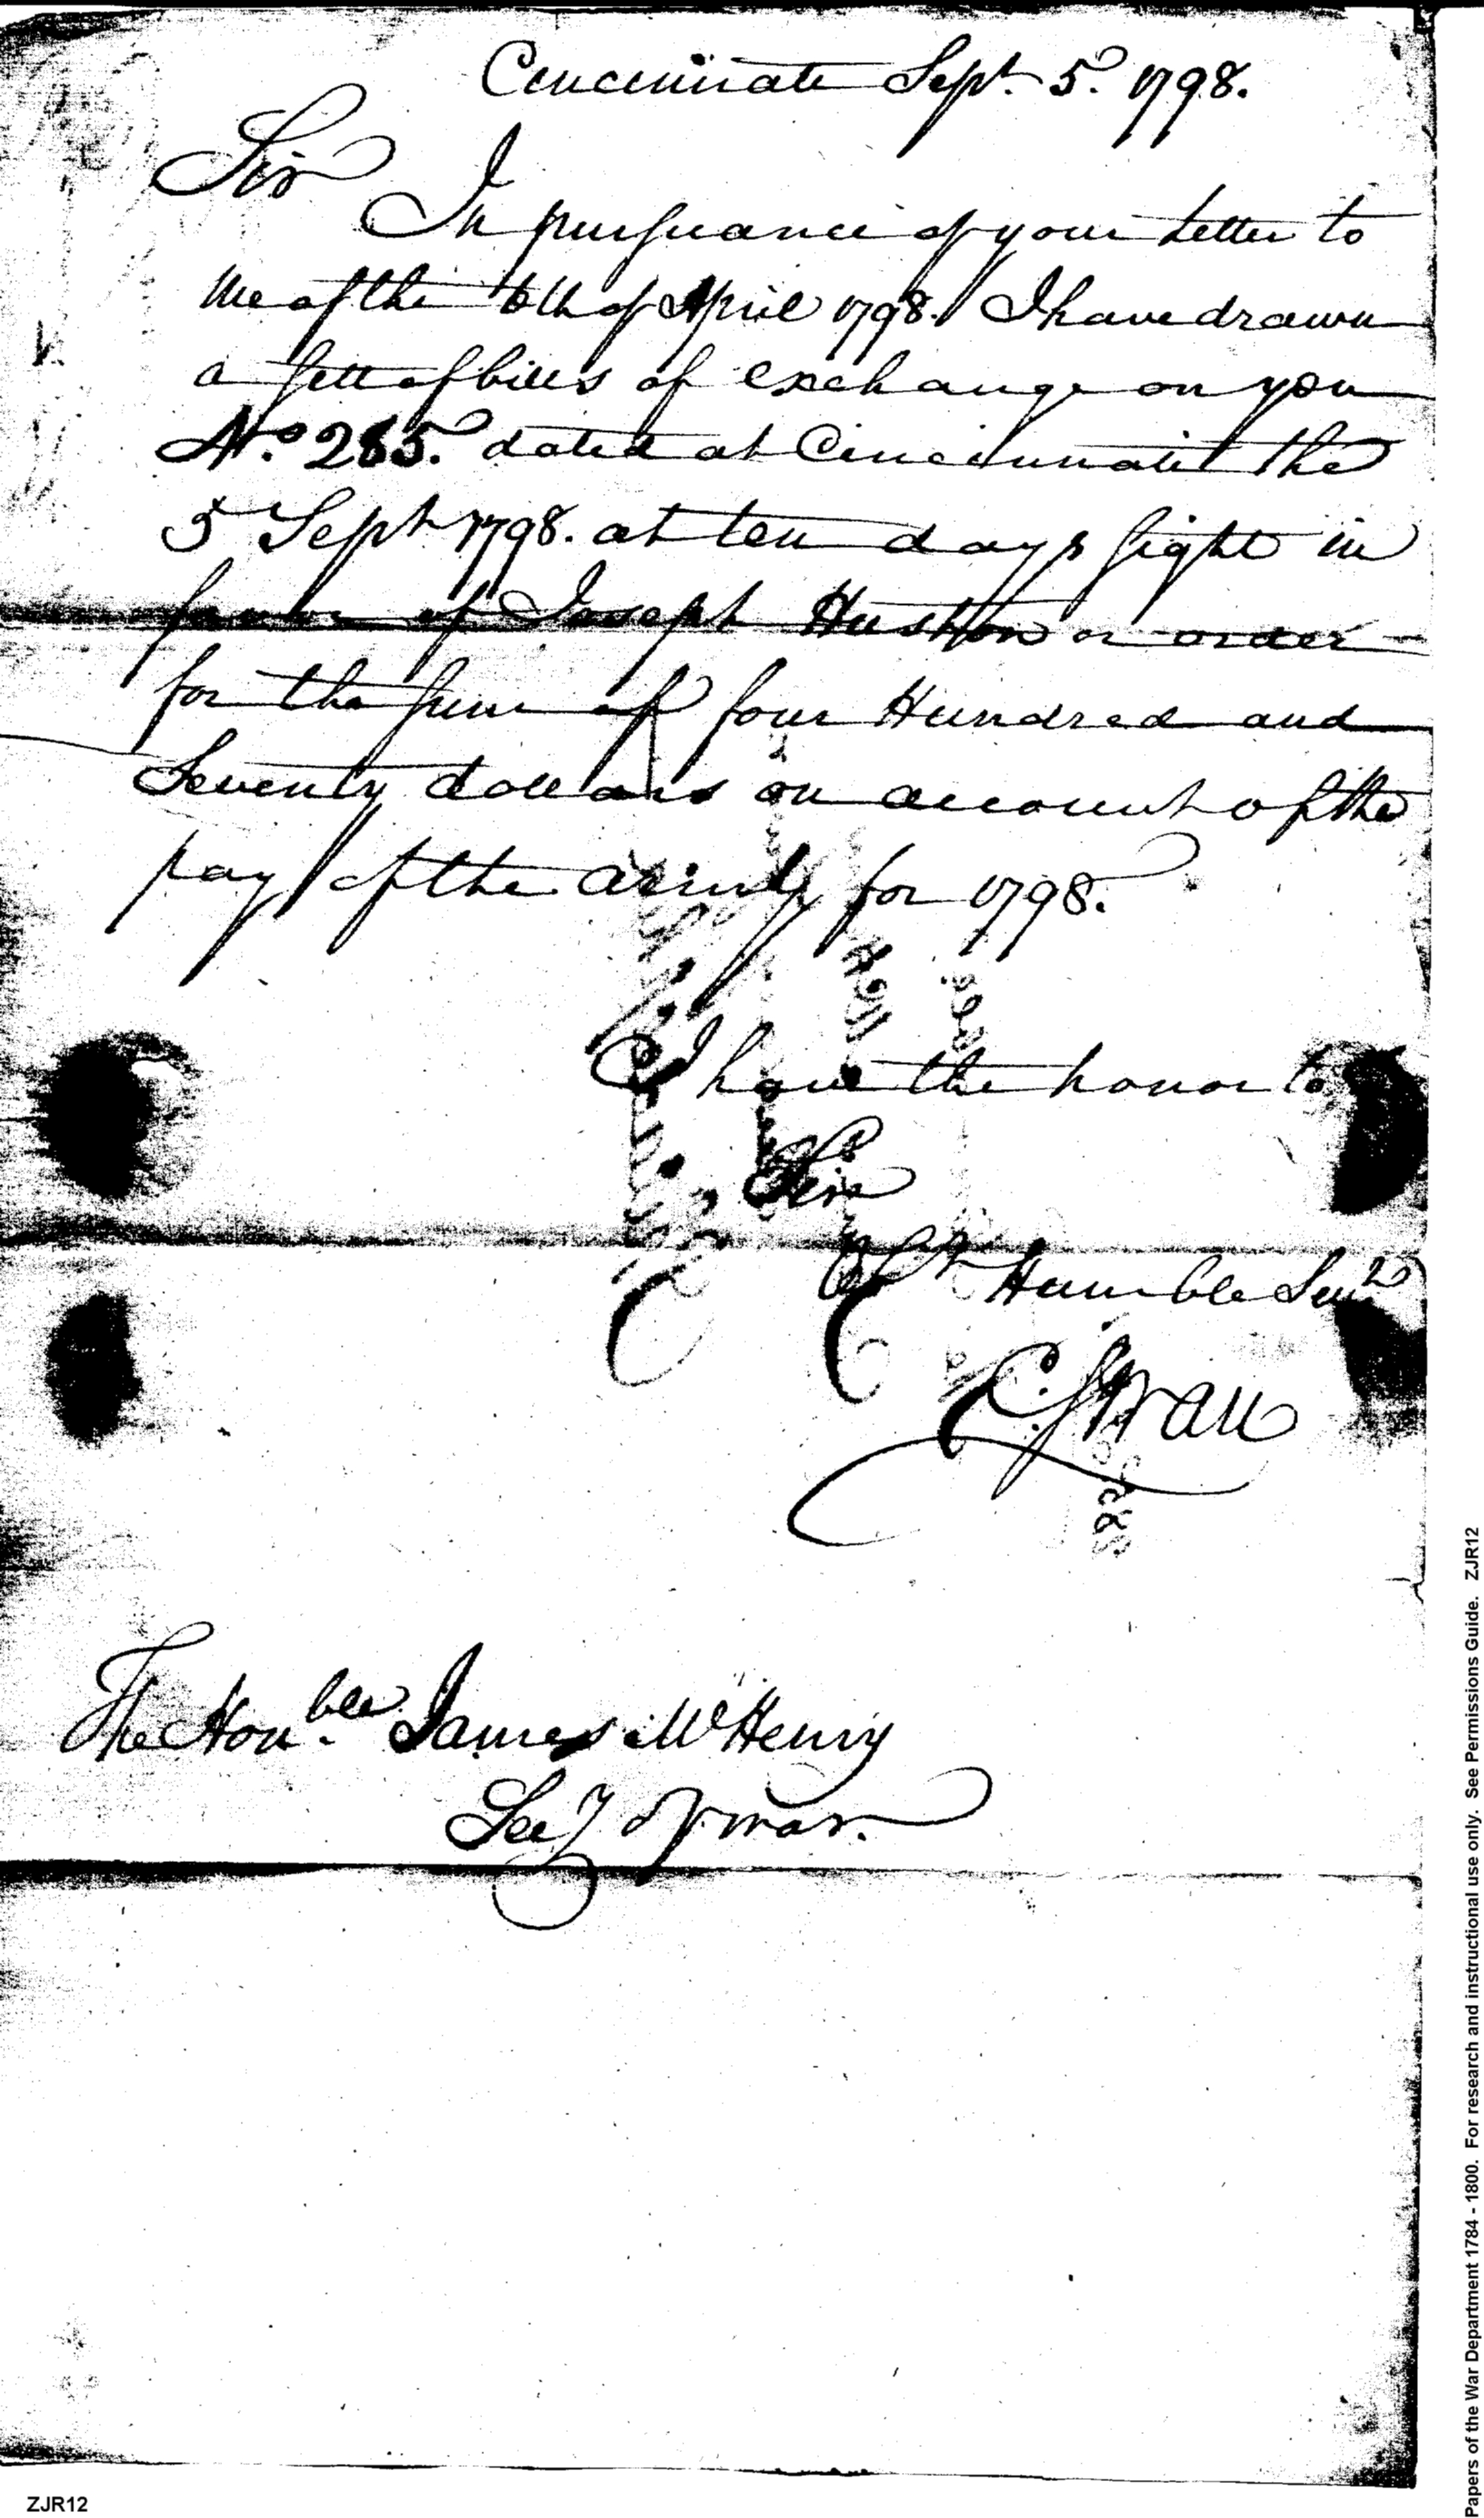 Cincinnati Sept. 5. 1798.
Sir
In pursuance of your letter to
me of the 6th of April 1798. I have drawn
a sett of bills of exchange on you
No. 285. dated at Cincinnati the
5 Sept 1798. at ten days sight in
favor of Joseph Huston or order
for the sum of four Hundred and
Seventy dollars on account of the
pay of the army for 1798.
I have the honor to
Sir
Obt Humble Servt
C. Swan
The Honble. James McHenry
Secy of war.
ZJR12
Papers of the War Department 1784 - 1800. For research and instructional use only. See Permissions Guide. ZJR12